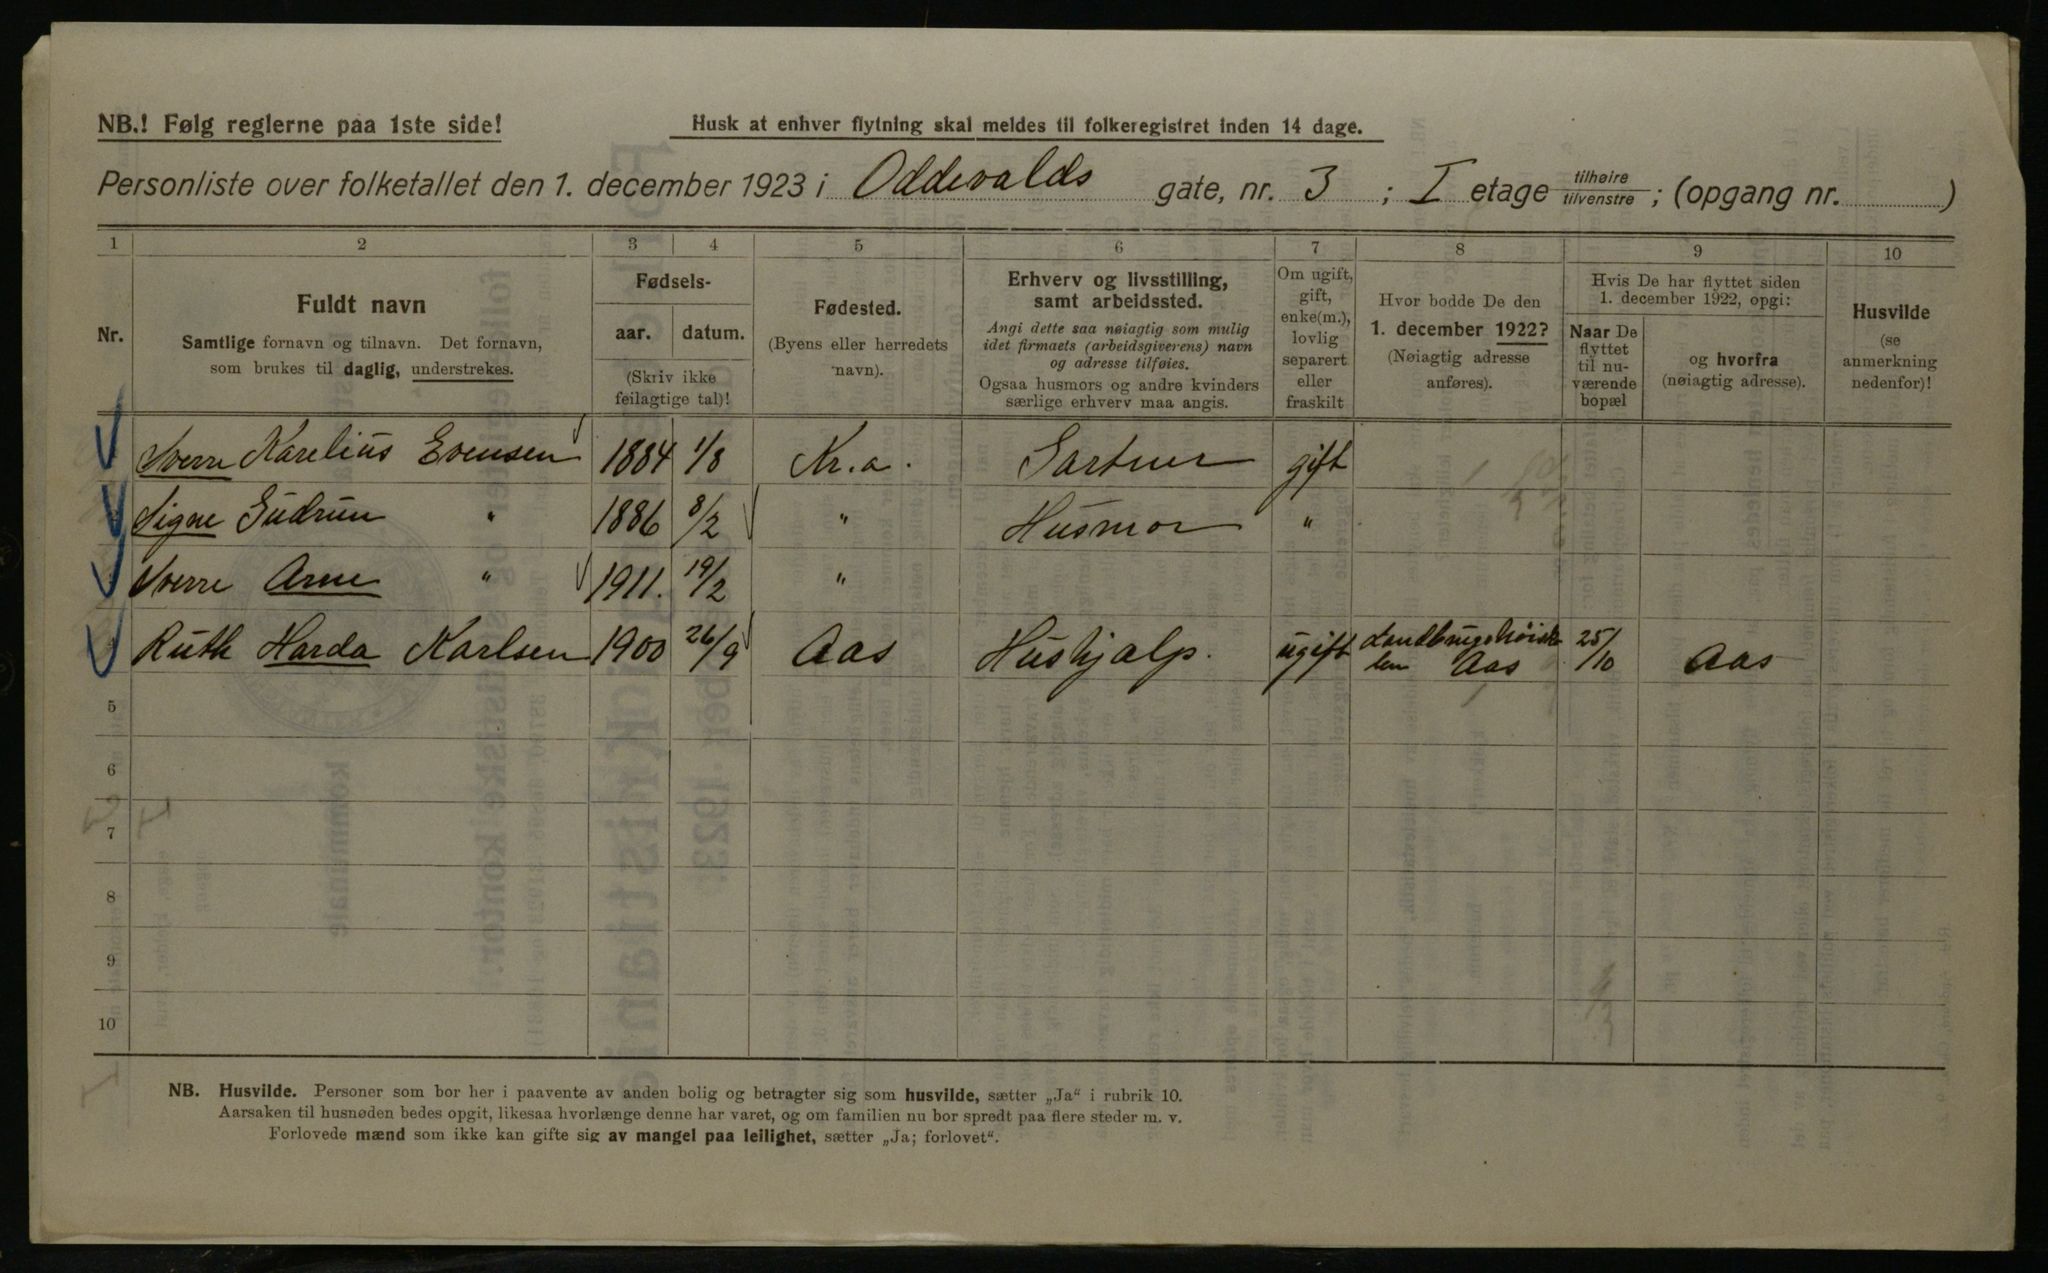 NB.! Følg reglerne paa 1ste side!
Husk at enhver flytning skal meldes til folkeregistret inden 14 dage.
Personliste over folketallet den 1. december 1923 i Oddevalds gate, nr. 3 ; I etage tilhøire/tilvenstre ; (opgang nr. )
1 2 3 4 5 6 7 8 9 10
Nr.
Fuldt navn
Samtlige fornavn og tilnavn. Det fornavn,
som brukes til daglig, understrekes.
Fødsels-
aar. datum.
(Skriv ikke
feilagtige tal)!
Fødested.
(Byens eller herredets
navn).
Erhverv og livsstilling,
samt arbeidssted.
Angi dette saa nøiagtig som mulig
idet firmaets (arbeidsgiverens) navn
og adresse tilføies.
Ogsaa husmors og andre kvinders
særlige erhverv maa angis.
Om ugift,
gift,
enke(m.),
lovlig
separert
eller
fraskilt
Hvor bodde De den
1. december 1922?
(Nøiagtig adresse
anføres).
Hvis De har flyttet siden
1. december 1922, opgi:
Naar De
flyttet
til nu-
værende
bopæl
og hvorfra
(nøiagtig adresse).
Husvilde
(se
anmerkning
nedenfor)!
Sverre Karelius Evensen 1884 1/8 Kr.a. Gartner gift
Signe Gudrun " 1886 8/2 " Husmor "
Sverre Arne " 1911. 19/2 "
Ruth Harda Karlsen 1900 26/9 Aas Hushjælp. ugift Landbrugshøisko
len Aas 25/10 Aas
5
6
7
8
9
10
NB. Husvilde. Personer som bor her i paavente av anden bolig og betragter sig som husvilde, sætter „Ja“ i rubrik 10.
Aarsaken til husnøden bedes opgit, likesaa hvorlænge denne har varet, og om familien nu bor spredt paa flere steder m. v.
Forlovede mænd som ikke kan gifte sig av mangel paa leilighet, sætter „Ja; forlovet“.